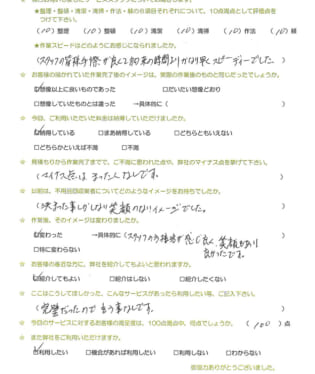 ★整理・整頓・清潔・清掃・作法・躾の6項目それぞれについて、10点満点として評価点を
つけて下さい。
(10)整理 (10)整頓 (10)清潔 (10)清掃 (10)作法 (10)躾
★作業スピードはどのようにお感じになられましたか。
(スタッフの皆様手際が良くて約束の時間よりかなり早くスピーディーでした。)
☆ お客様の描かれていた作業完了後のイメージは、実際の作業後のものと同じだったでしょうか。
☑想像以上に良いものであった □だいたい想像どおり
□想像していたものとは違った →具体的に( )
☆ 今回、ご利用いただいた料金は納得していただけましたか。
☑納得している □まあ納得している □どちらともいえない
□どちらかといえば不満 □不満
☆ 見積もりから作業完了までで、ご不満に思われた点や、弊社のマイナス点を挙げて下さい。
(マイナス点はまったくなしです。)
☆ 以前は、不用品回収業者についてどのようなイメージをお持ちでしたか。
(決まった事しかしない笑顔のないイメージでした。)
☆ 作業後、そのイメージは変わりましたか。
☑変わった →具体的に(スタッフの皆様が感じ良く、笑顔があり
良かったです。)
□特に変わらない
☆ お客様の身近な方に、弊社を紹介してもよいと思われますか。
☑紹介してもよい □紹介はしない □紹介したくない
☆ ここはこうしてほしかった、こんなサービスがあったら利用したい等、ご記入下さい。
(完璧だったので もう事なしです。)
☆ 今回のサービスに対するお客様の満足度は、100点満点中、何点でしょうか。(100)点
☆ また弊社をご利用いただけますか。
☑利用したい □機会があれば利用したい □利用しない □わからない
御協力ありがとうございました。